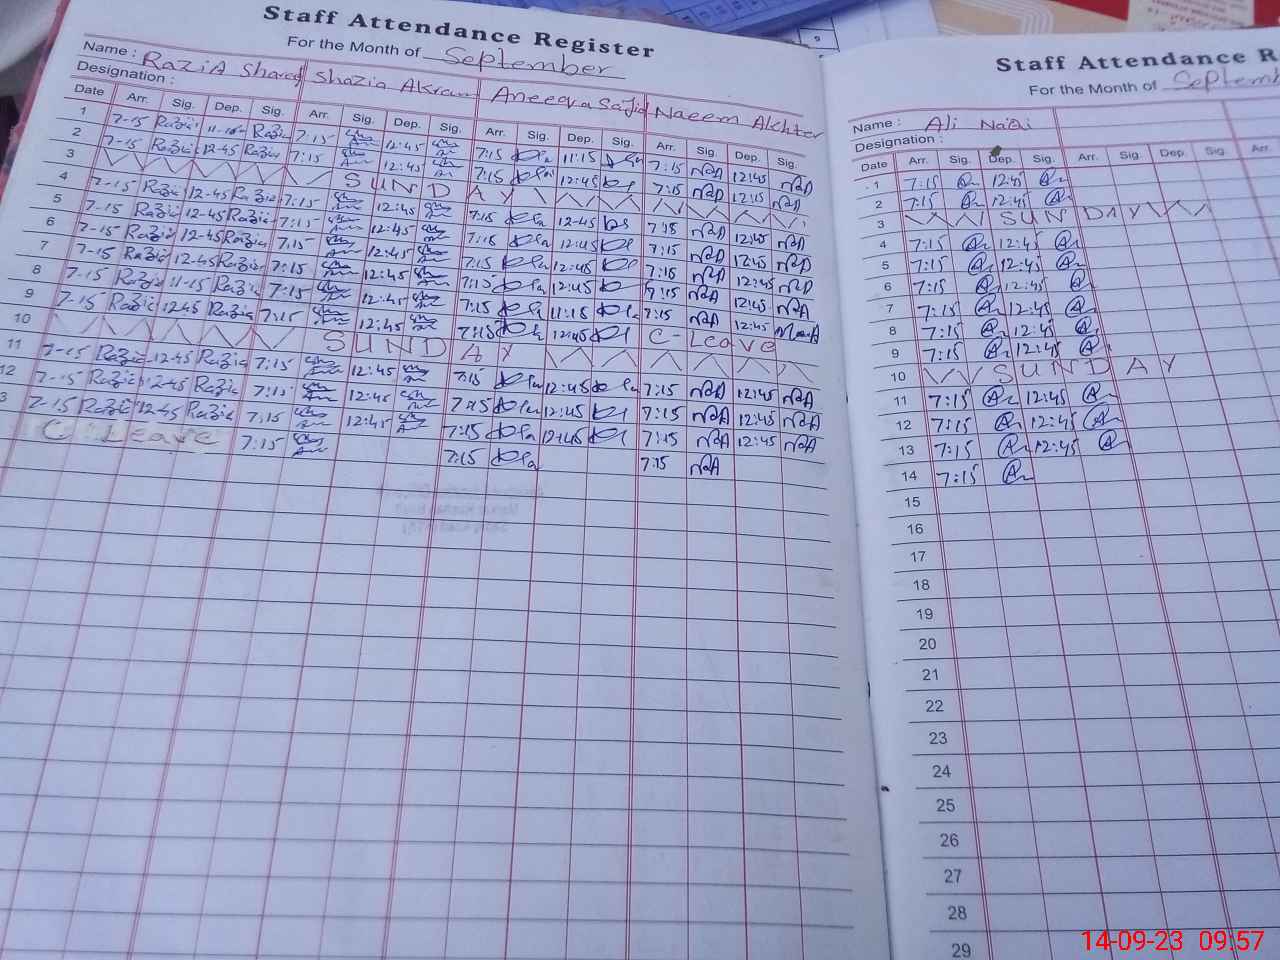 Staff Attendance Register
For the Month of September
Name : Razia Sharaf Shazia Akram Aneeqa Sajid Naeem Akhter
Designation :
Date Arr. Sig. Dep. Sig. Arr. Sig. Dep. Sig. Arr. Sig. Dep. Sig. Arr. Sig. Dep. Sig.
1 7-15 Razia Razia 7:15 12:45 7:15 11:15 7:15 NaA 12:45 NaA
2 7-15 Razia 12-45 Razia 7:15 12:45 7:15 12:45 7:15 NaA 12:15 NaA
3 SUNDAY
4 7-15 Razia 12-45 Razia 7:15 12:45 7:15 12-45 7:15 NaA 12:45 NaA
5 7-15 Razia 12-45 Razia 7:15 12:45 7:15 12:45 7:15 NaA 12:45 NaA
6 7-15 Razia 12-45 Razia 7:15 12:45 7:15 12:45 7:15 NaA 12:45 NaA
7 7-15 Razia 12-45 Razia 7:15 12:45 7:15 12:45 7:15 NaA 12:45 NaA
8 7-15 Razia 11-15 Razia 7:15 12:45 7:15 11:15 7:15 NaA 12:45
9 7-15 Razia 12-45 Razia 7:15 12:45 7:15 12:45 C- Leave
10 SUNDAY
11 7-15 Razia 12-45 Razia 7:15 12:45 7:15 12:45 7:15 NaA 12:45 NaA
12 7-15 Razia 12-45 Razia 7:15 12:45 7:15 12:45 7:15 NaA 12:45 NaA
3 7-15 Razia 12-45 Razia 7:15 12:45 7:15 12:45 7:15 NaA 12:45 NaA
C Leave 7:15 7:15 7:15 NaA
Staff Attendance R
For the Month of Septem
Name : Ali Naqi
Designation :
Date Arr. Sig. Dep. Sig. Arr. Sig. Dep. Sig. Arr.
1 7:15 12:45
2 7:15 12:45
3 SUNDAY
4 7:15 12:45
5 7:15 12:45
6 7:15 12:45
7 7:15 12:45
8 7:15 12:45
9 7:15 12:45
10 SUNDAY
11 7:15 12:45
12 7:15 12:45
13 7:15 12:45
14 7:15
15
16
17
18
19
20
21
22
23
24
25
26
27
28
29
14-09-23 09:57